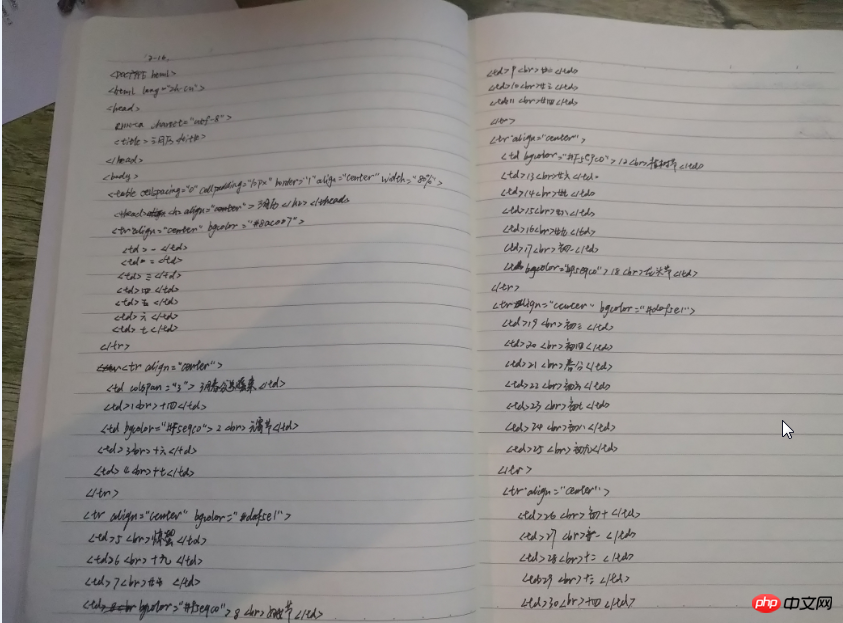 2-16.
<DOCTYPE html>
<html lang="zh-cn">
<head>
charset="utf-8">
<title>三月份</title>
</head>
<body>
<table cellspacing="0" cellpadding="10px" border="1" align="center" width="85%">
</h2></thead>
<tr align="center" bgcolor="#8ac007">
<td>一</td>
<td>二</td>
<td>三</td>
<td>四</td>
<td>五</td>
<td>六</td>
<td>七</td>
</tr>
<tr align="center">
<td colspan="3">3月春分</td>
<td>1 十四</td>
<td bgcolor="#f5e9c0">2 元宵节</td>
<td>3 十六</td>
<td>4 十七</td>
</tr>
<tr align="center" bgcolor="#dafse1">
<td>5 惊蛰</td>
<td>6 十九</td>
<td>7 二十</td>
<td bgcolor="#f5e9c0">8 妇女节</td>
<td>9 廿二</td>
<td>10 廿三</td>
<td>11 廿四</td>
</tr>
<tr align="center">
<td bgcolor="#f5e9c0">12 植树节</td>
<td>13 廿六</td>
<td>14 廿七</td>
<td>15 </td>
<td>16 </td>
<td>17 初一</td>
<td bgcolor="#f5e9c0">18 龙头节</td>
</tr>
<tr align="center" bgcolor="#dafse1">
<td>19 初三</td>
<td>20 初四</td>
<td>21 春分</td>
<td>22 初六</td>
<td>23 初七</td>
<td>24 初八</td>
<td>25 初九</td>
</tr>
<tr align="center">
<td>26 初十</td>
<td>27 十一</td>
<td>28 十二</td>
<td>29 十三</td>
<td>30 十四</td>
php 中文网